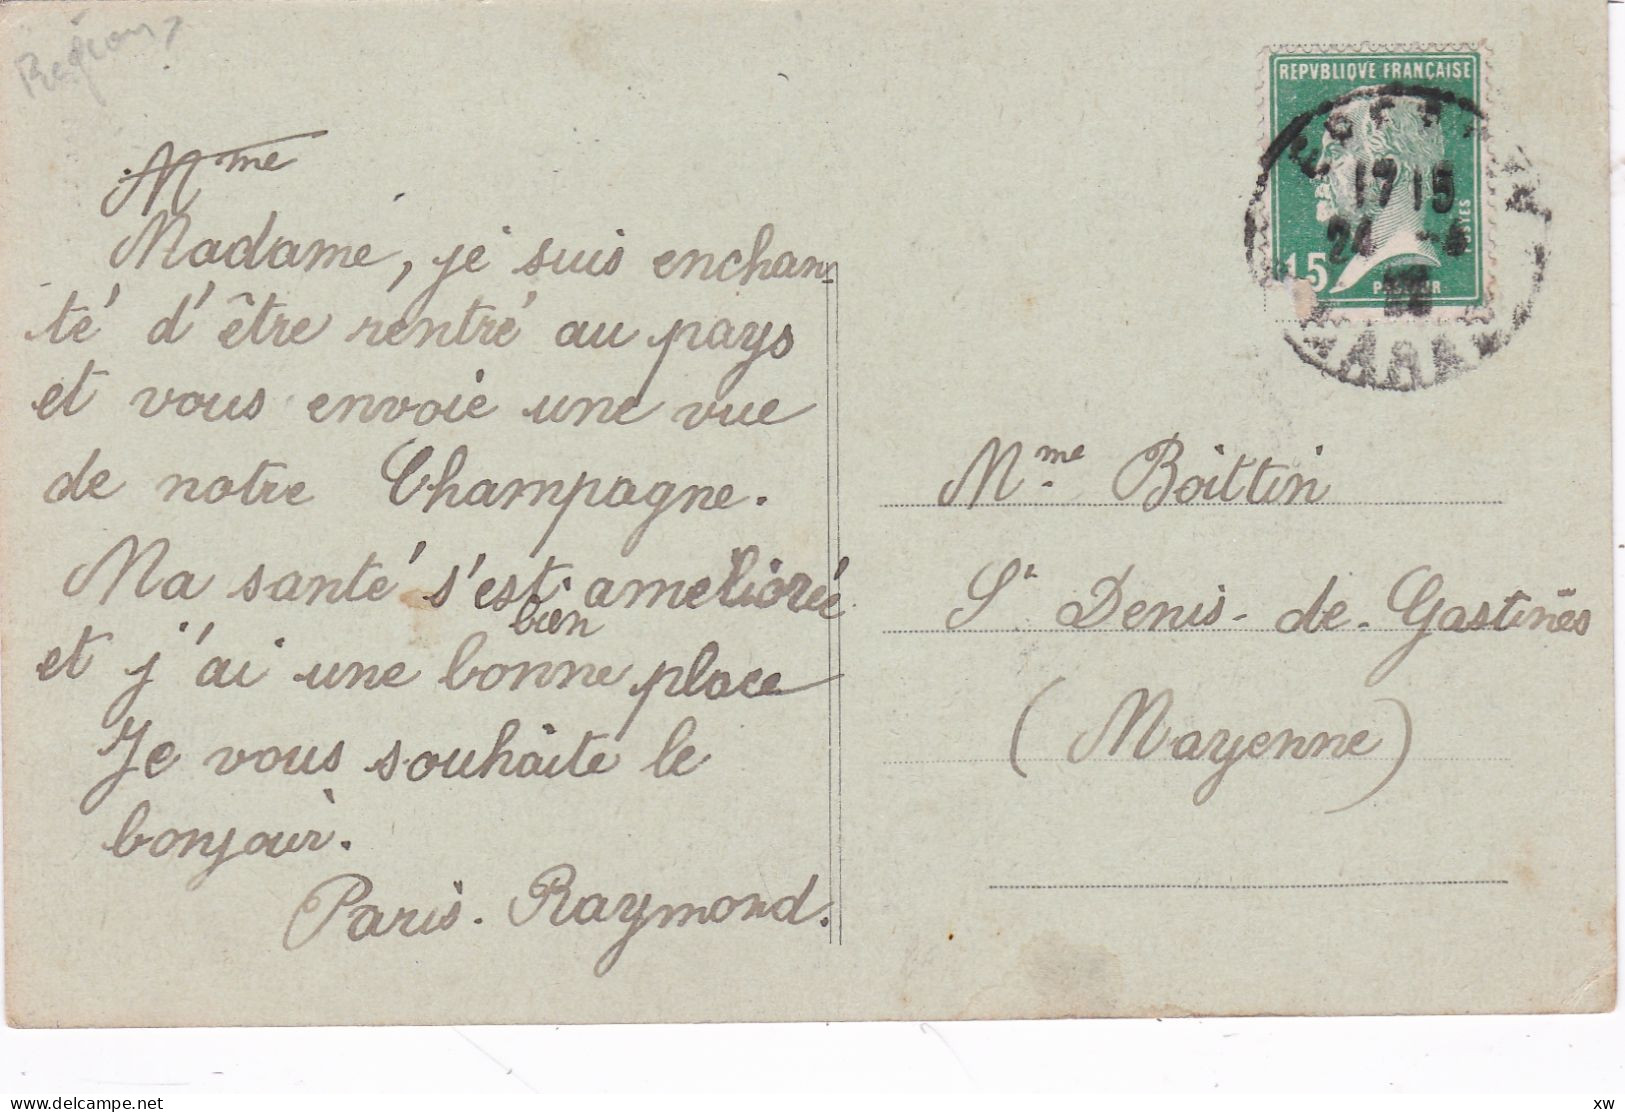 Mme
Madame, je suis enchan-
té d'être rentré au pays
et vous envoie une vue
de notre Champagne.
Ma santé s'est bien ameliorée
et j'ai une bonne place
Je vous souhaite le
bonjour.
Paris. Raymond.
REPVBLIQVE FRANÇAISE
POSTES
15
PASTEUR
EPERNAY
17 15
24
MARNE
Mme Boittin
St Denis-de-Gastines
(Mayenne)
delcampe.net
xw